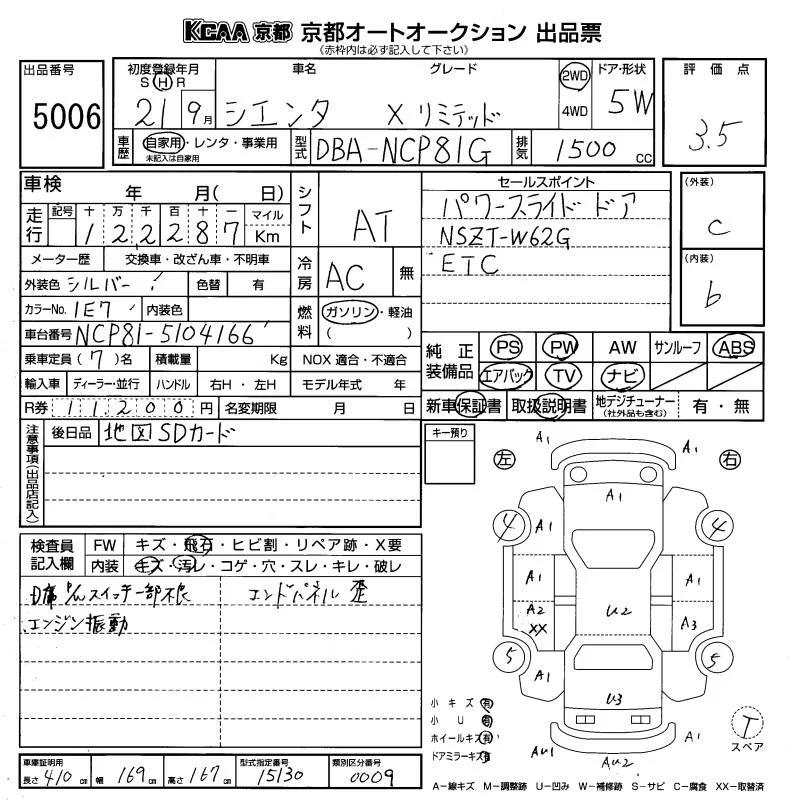 KCAA 京都 京都オートオークション 出品票
(赤枠内は必ず記入して下さい)
出品番号
5006
初度登録年月
S H R
21 9月
車名
シエンタ
グレード
X リミテッド
2WD
4WD
ドア・形状
5W
評価点
3.5
車歴
自家用・レンタ・事業用
未記入は自家用
型式
DBA-NCP81G
排気
1500 cc
車検
年 月( 日)
走行
記号 十 万 千 百 十 一 マイル
1 2 2 2 8 7 Km
メーター歴 交換車・改ざん車・不明車
外装色 シルバー
色替 有
カラーNo. 1E7
内装色
車台番号 NCP81-5104166
乗車定員 (7)名
積載量 Kg
輸入車 ディーラー・並行
ハンドル 右H・左H
R券 11,200円
名変期限 月 日
シフト
AT
冷房
AC 無
燃料
ガソリン・軽油
( )
NOX 適合・不適合
モデル年式 年
セールスポイント
パワースライドドア
NSZT-W62G
ETC
(外装)
C
(内装)
b
純正装備品
PS PW AW サンルーフ ABS
エアバック TV ナビ
新車保証書 取扱説明書
地デジチューナー
(社外品も含む)
有・無
注意事項(出品店記入)
後日品 地図SDカード
キー預り
検査員記入欄
FW キズ・飛石・ヒビ割・リペア跡・X要
内装 キズ・汚レ・コゲ・穴・スレ・キレ・破レ
D席 P/Wスイッチ一部不良
エンドパネル 歪
エンジン振動
左 右
A1
A1
A1
4 A1 A1 4
A1 A1
A2 U2 A3
XX
5 A1 A1 5
U3
AU1 AU2 A1
小キズ 有
小U 有
ホイールキズ 有
ドアミラーキズ 有
T
スペア
車庫証明用
長さ 410 cm
幅 169 cm
高さ 167 cm
型式指定番号
15130
類別区分番号
0009
A-線キズ M-調整跡 U-凹み W-補修跡 S-サビ C-腐食 XX-取替済